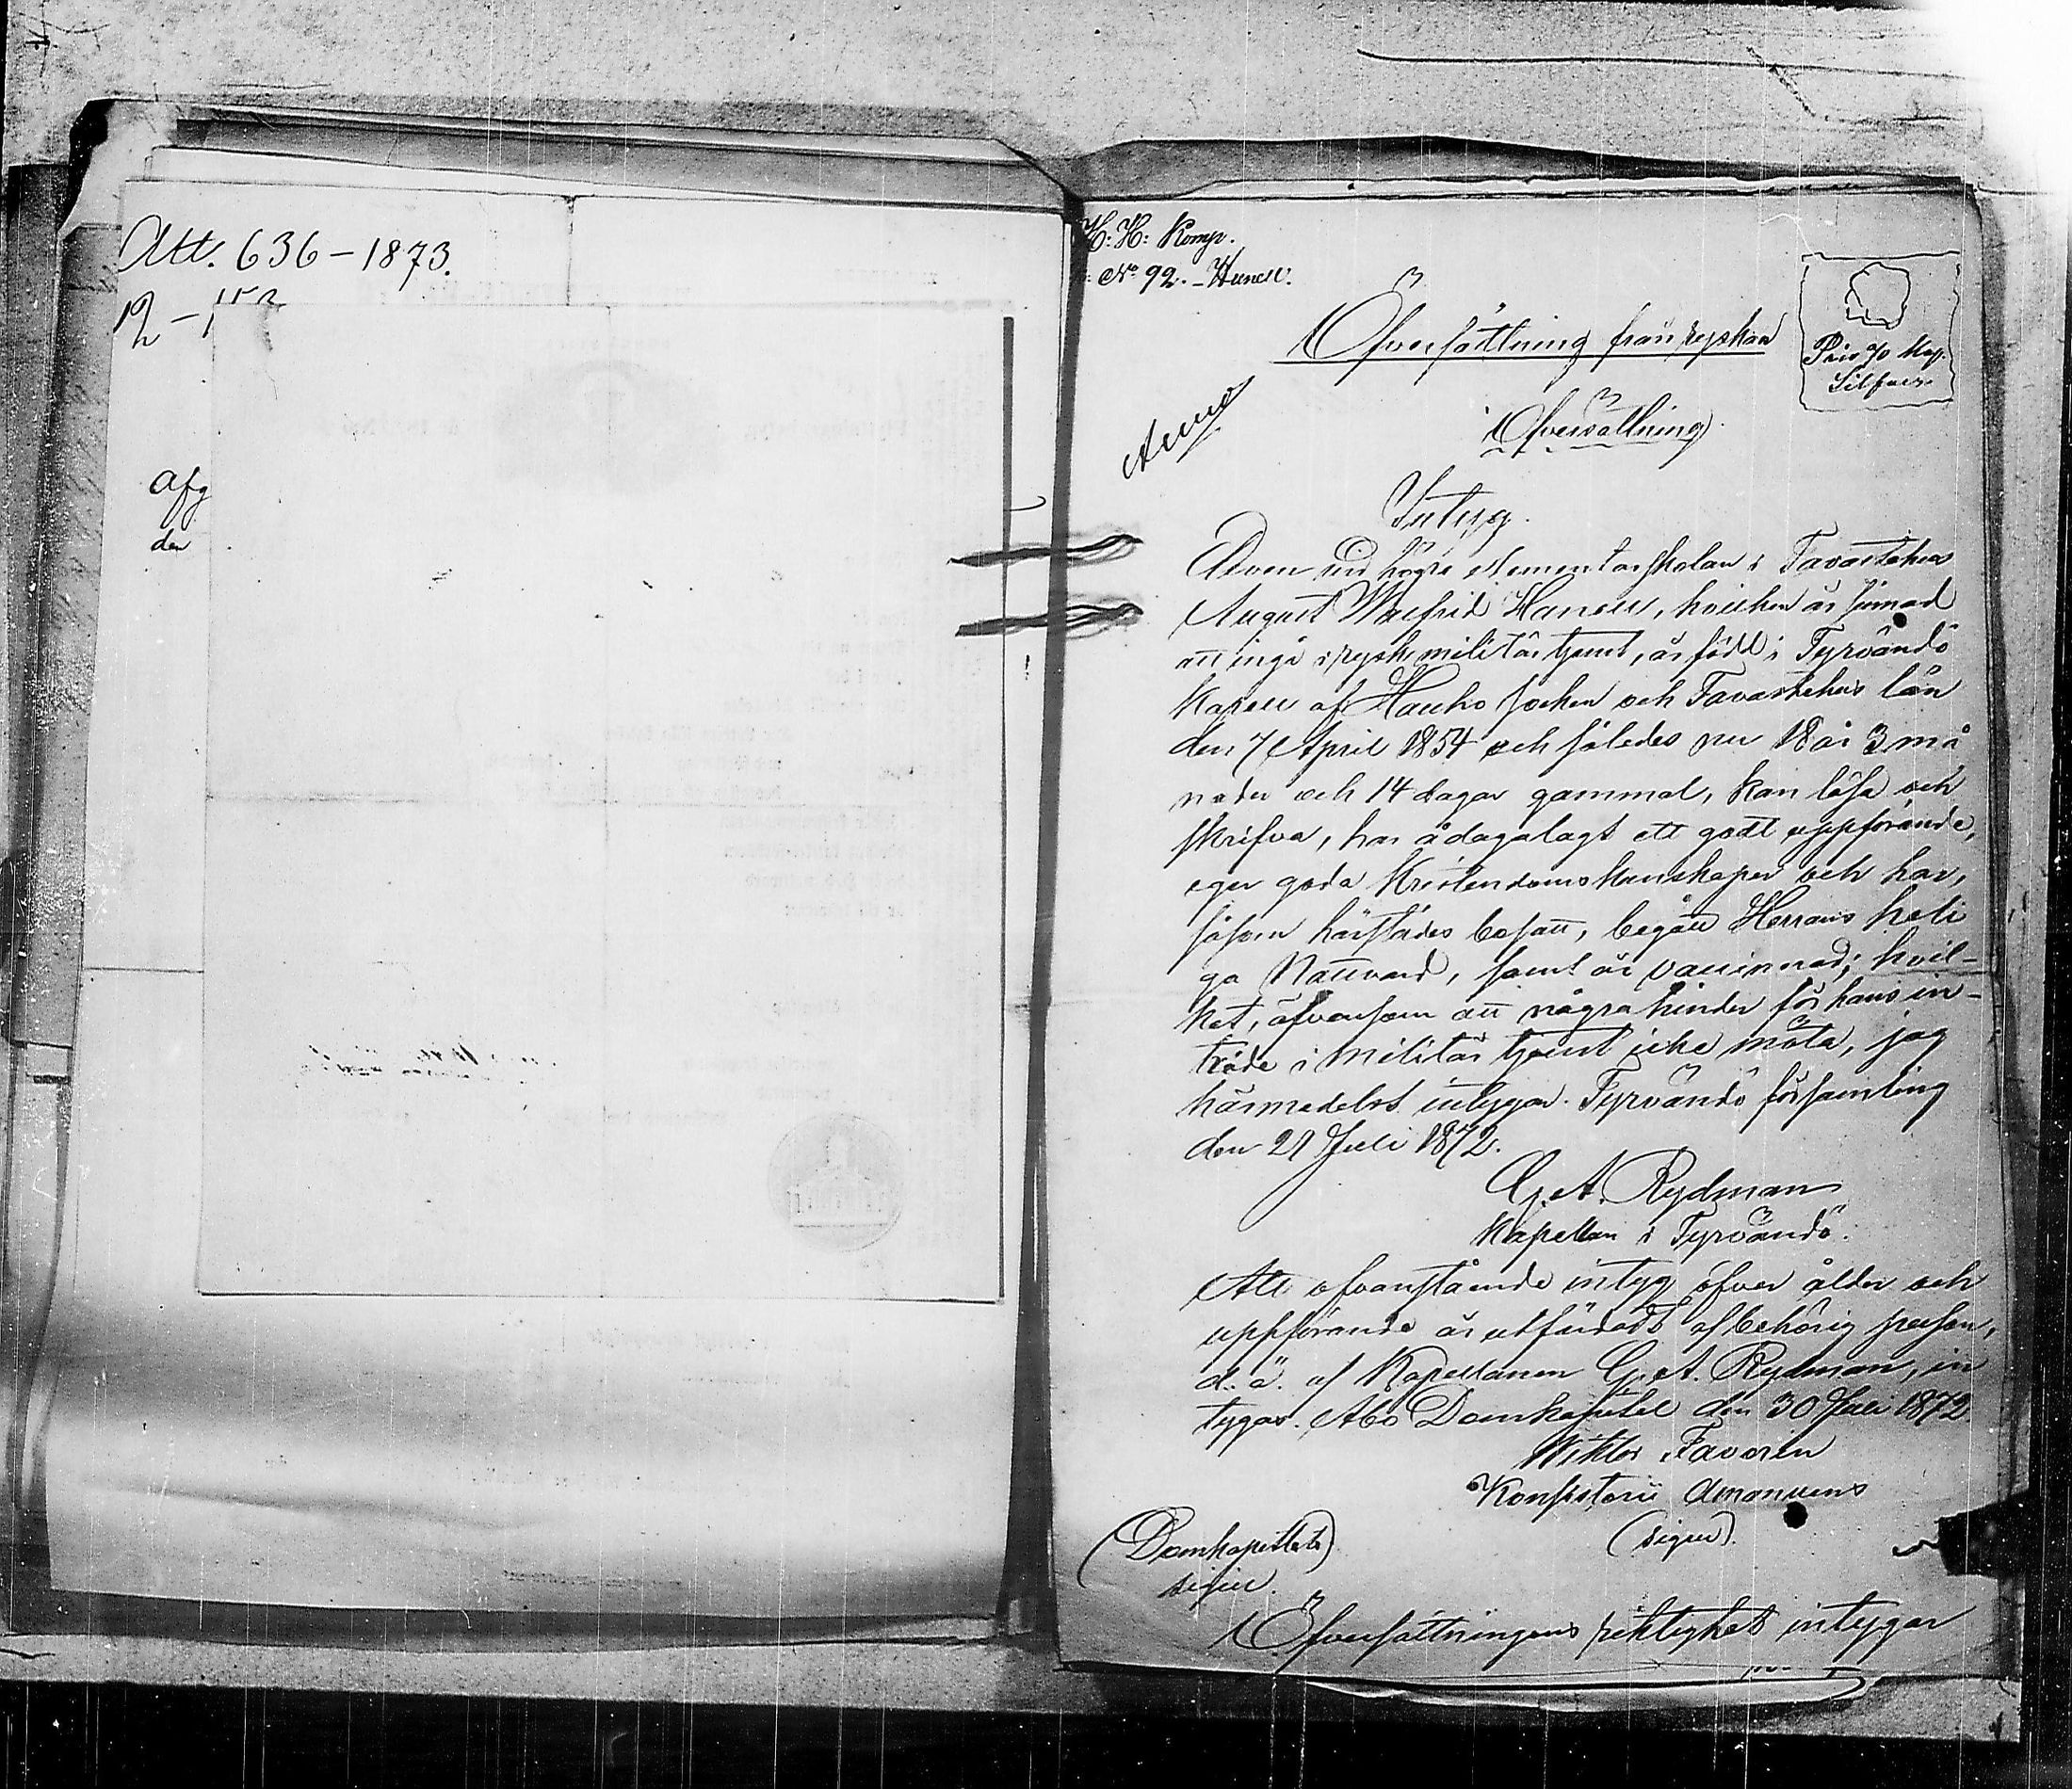 Att. 636-1873.
Afg
den
H: H: Komp.
No 92. - Hanell.
Öfversättning från ryskan
Pris 70 Kop.
Silfver.
Öfversättning
Intyg.
Eleven vid högre elementarskolan i Tavastehus
August Walfrid Hanell, hvilken är sinnad
att ingå i rysk militär tjenst, är född i Tyrvändö
Kapell af Hauho socken och Tavastehus län
den 7 April 1854 och således nu 18 år 3 må
nader och 14 dagar gammal, kan läsa och
skrifva, har ådagalagt ett godt uppförande,
eger goda Kristendomskunskaper och har,
såsom härstädes bosatt, begått Herrans heli
ga Nattvard, samt är vaccinerad; hvil-
ket, äfvensom att några hinder för hans in-
träde i militär tjenst icke möta, jag
härmedelst intygar. Tyrvändö församling
den 21 Juli 1872.
G. A. Rydman
Kapellan i Tyrvändö.
Att ofvanstående intyg öfver ålder och
uppförande är utfärdadt af behörig person,
d. ä. af Kapellanen G. A. Rydman, in
tygas. Åbo Domkapitel den 30 Juli 1872
Wiktor Favorin
Konsistorii Amanuens
(Domkapitlets)
sigill.
(sigill).
Öfversättningens riktighet intygar